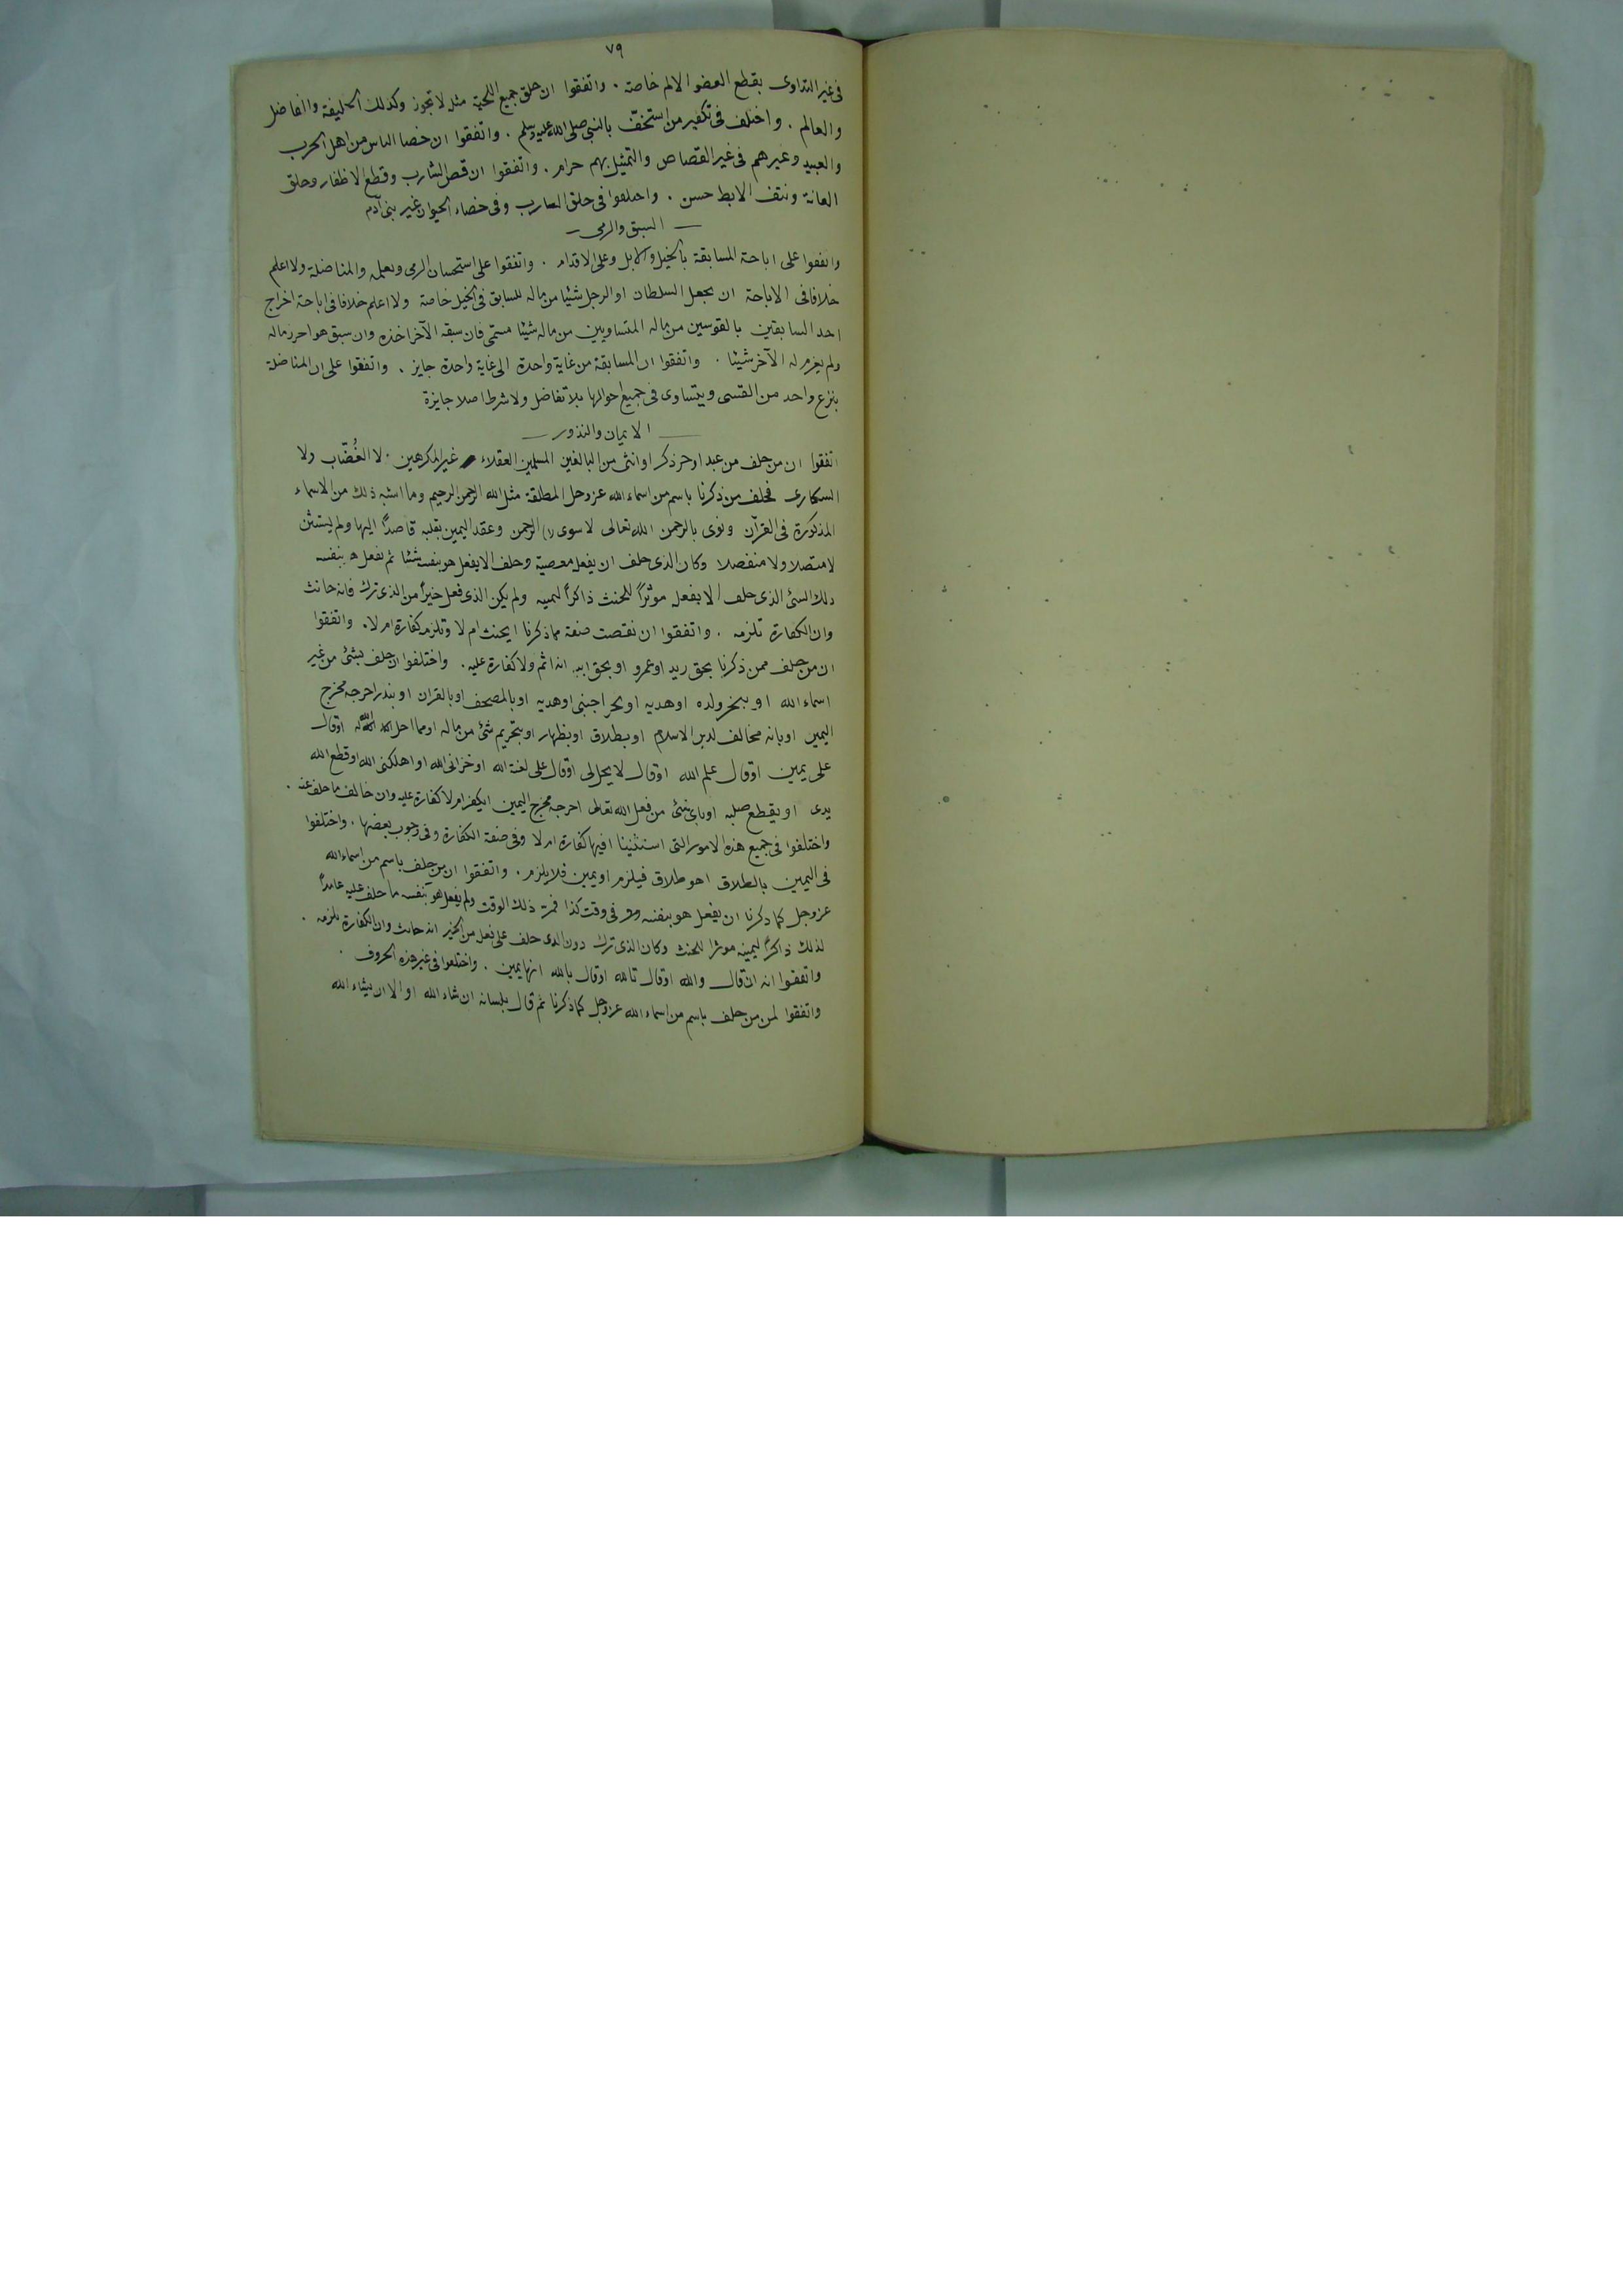 ٧٩
فى غير التداوى بقطع العضو الالم خاصة . واتفقوا ان حلق جميع اللحية مثلة لا تجوز وكذلك الخليفة والفاضل
والعالم . واختلف فى تكفير من استخفّ بالنبى صلى الله عليه وسلم . واتفقوا ان خصا الناس من اهل الحرب
والعبيد وغيرهم فى غير القصاص والتمثيل بهم حرام . واتفقوا ان قص الشارب وقطع الاظفار وحلق
العانة ونتف الابط حسن . واختلفوا فى حلق الشارب وفى خصاء الحيوان غير بنى آدم
السبق والرمى
واتفقوا على اباحة المسابقة بالخيل والابل وعلى الاقدام . واتفقوا على استحسان الرمى وتعلمه والمناضلة ولا اعلم
خلافا فى الاباحة ان يجعل السلطان او الرجل شيئا من ماله للسابق فى الخيل خاصة ولا اعلم خلافا فى اباحة اخراج
احد السابقين بالقوسين من ماله المتساويين من ماله شيئا مسمّى فان سبقه الآخر اخذه وان سبق هو احرز ماله
ولم يغرم له الآخر شيئا . واتفقوا ان المسابقة من غاية واحدة الى غاية واحدة جايز . واتفقوا على ان المناضلة
بنزع واحد من القسى ويتساوى فى جميع احوالها بلا تفاضل ولا شرط اصلا جايزة
الايمان والنذور
اتفقوا ان من حلف من عبد او حر ذكر او انثى من البالغين المسلمين العقلاء غير المكرهين . لا الغُضّاب ولا
السكارى فحلف من ذكرنا باسم من اسماء الله عز وجل المطلقة مثل الله الرحمن الرحيم وما اشبه ذلك من الاسماء
المذكورة فى القرآن ونوى بالرحمن الله تعالى لا سورة الرحمن وعقد اليمين بقلبه قاصدًا اليها ولم يستثن
لا متصلا ولا منفصلا وكان الذى حلف ان يفعل معصية وحلف الا يفعل هو بنفسه شيئا ثم يفعل هو بنفسه
ذلك الشئ الذى حلف الا يفعل موثرًا للحنث ذاكرًا ليمينه ولم يكن الذى فعل خيرًا من الذى ترك فانه حانث
وان الكفارة تلزمه . واتفقوا ان نقصت صفة مما ذكرنا ايحنث ام لا وتلزمه كفارة ام لا . واتفقوا
ان من حلف ممن ذكرنا بحق زيد او عمرو او بحق ابيه انه اثم ولا كفارة عليه . واختلفوا ان حلف بشئ من غير
اسماء الله او بنحر ولده او هديه او نحر اجنبى او هديه او بالمصحف او بالقران او بنذر اخرجه مخرج
اليمين او بانه مخالف لدين الاسلام او بطلاق او بظهار او بتحريم شئ من ماله او مما احل الله له او قال
على يمين او قال علم الله او قال لا يحل لى او قال على لعنة الله او خزانى الله او اهلكنى الله او قطع الله
يدى او يقطع صلبه او باى شئ من فعل الله تعالى اخرجه مخرج اليمين ايكفر ام لا كفارة عليه وان خالف ما حلف عنه .
واختلفوا فى جميع هذه الامور التى استثنينا افيها كفارة ام لا وفى صفة الكفارة وفى وجوب بعضها . واختلفوا
فى اليمين بالطلاق اهو طلاق فيلزم او يمين فلا يلزم . واتفقوا ان من حلف باسم من اسماء الله
عز وجل كما ذكرنا ان يفعل هو بنفسه فى وقت كذا فمرّ ذلك الوقت ولم يفعل هو بنفسه ما حلف عليه عامدًا
لذلك ذاكرًا ليمينه موثرا للحنث وكان الذى ترك دون الذى حلف على فعله من الخير انه حانث وان الكفارة تلزمه .
واتفقوا انه ان قال والله او قال تالله او قال بالله انها يمين . واختلفوا فى غير هذه الحروف .
واتفقوا من حلف باسم من اسماء الله عز وجل كما ذكرنا ثم قال بلسانه ان شاء الله او الا ان يشاء الله